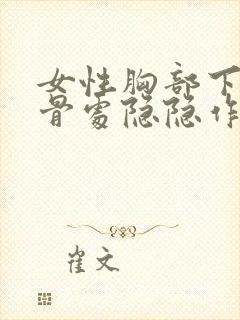 女性胸部下
骨处隐隐作
崔文